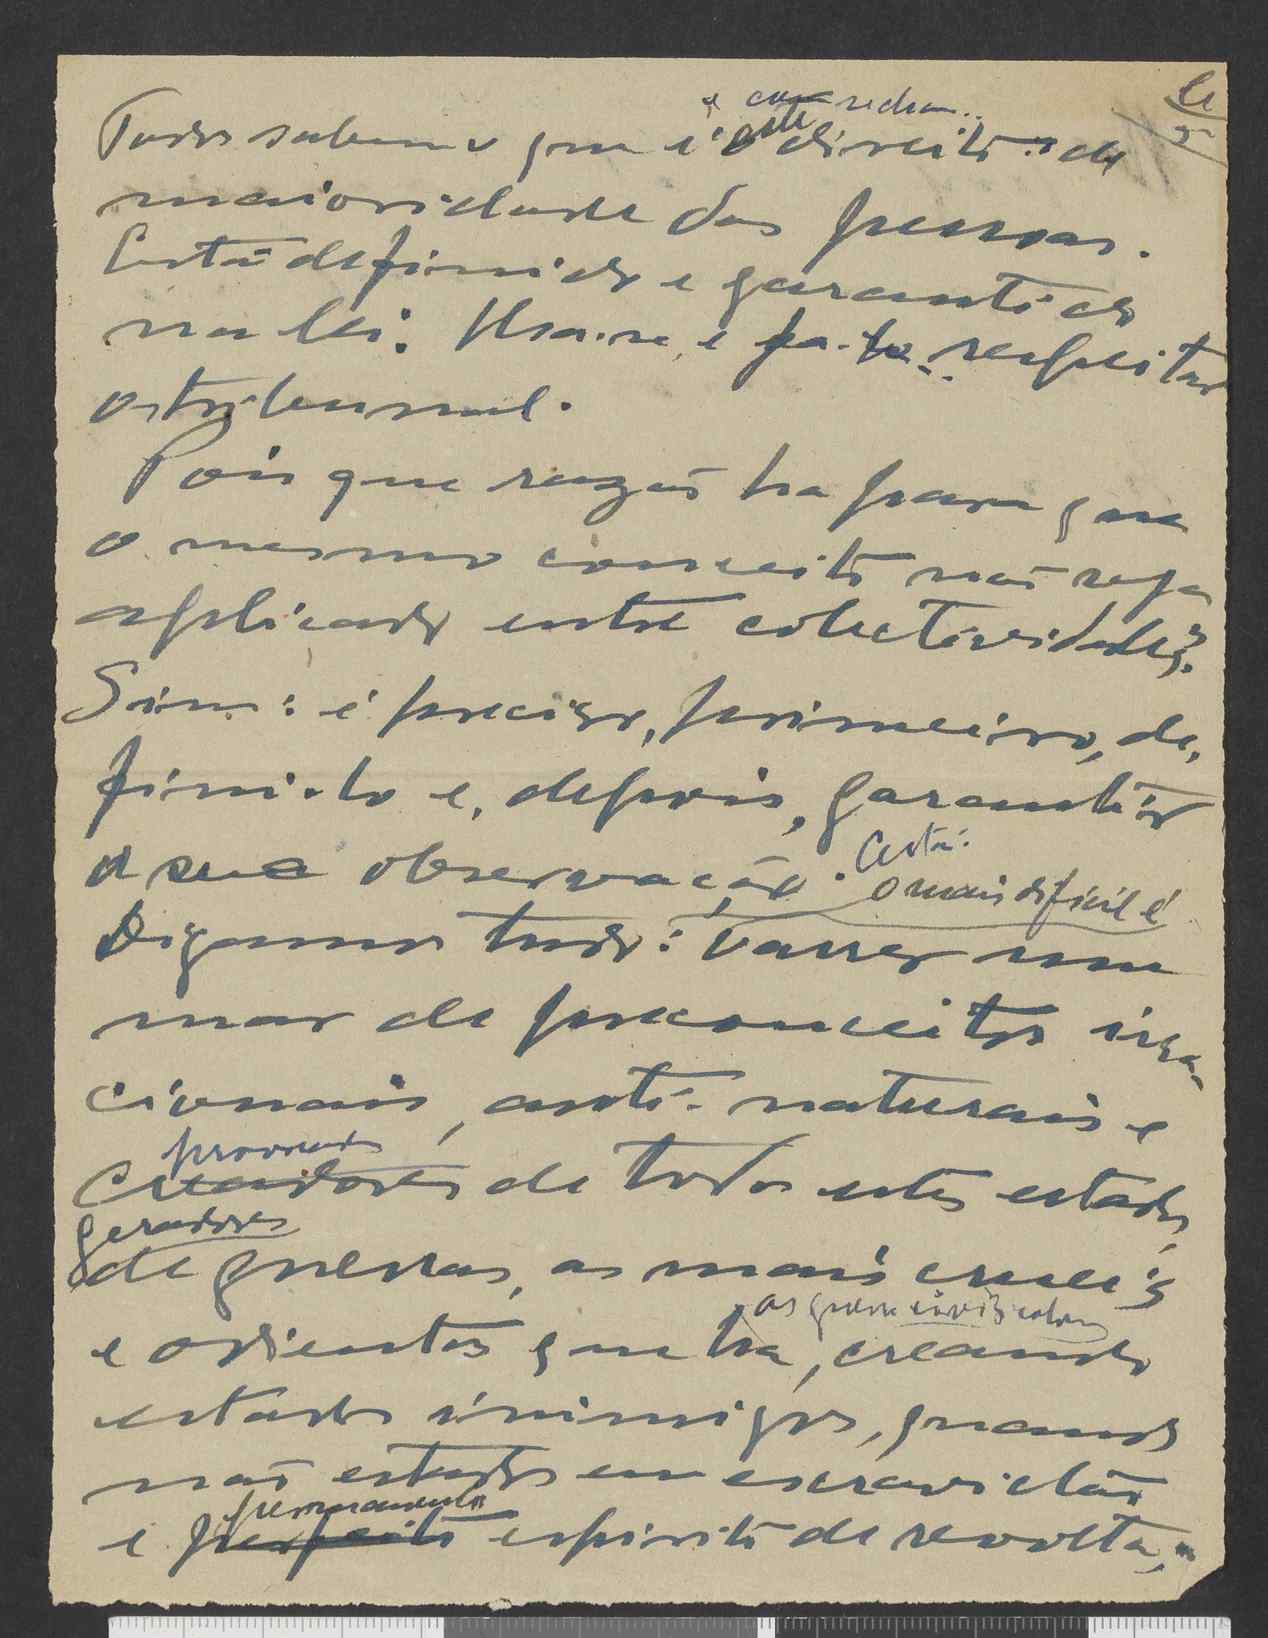 Todos sabemos que é este direito de
maioridade das pessoas.
Está definido e garantido
na lei. Usa-se, e fa-lo respeitar
o tribunal.
Pois que razão ha para que
o mesmo conceito não seja
aplicado entre colectividades?
Sim: é preciso, primeiro, de-
fini-lo e, depois, garantir
a sua observação. Está:
o mais dificil é
Digamos tudo: varrer um
mar de preconceitos irra-
cionais, anti-naturais e
creadores de todos estes estados
geradores
de guerras, as mais crueis
as guerras civis
e odientas que ha, creando
estados inimigos, quando
não estados em escravidão
permanente
e perfeito espirito de revolta,